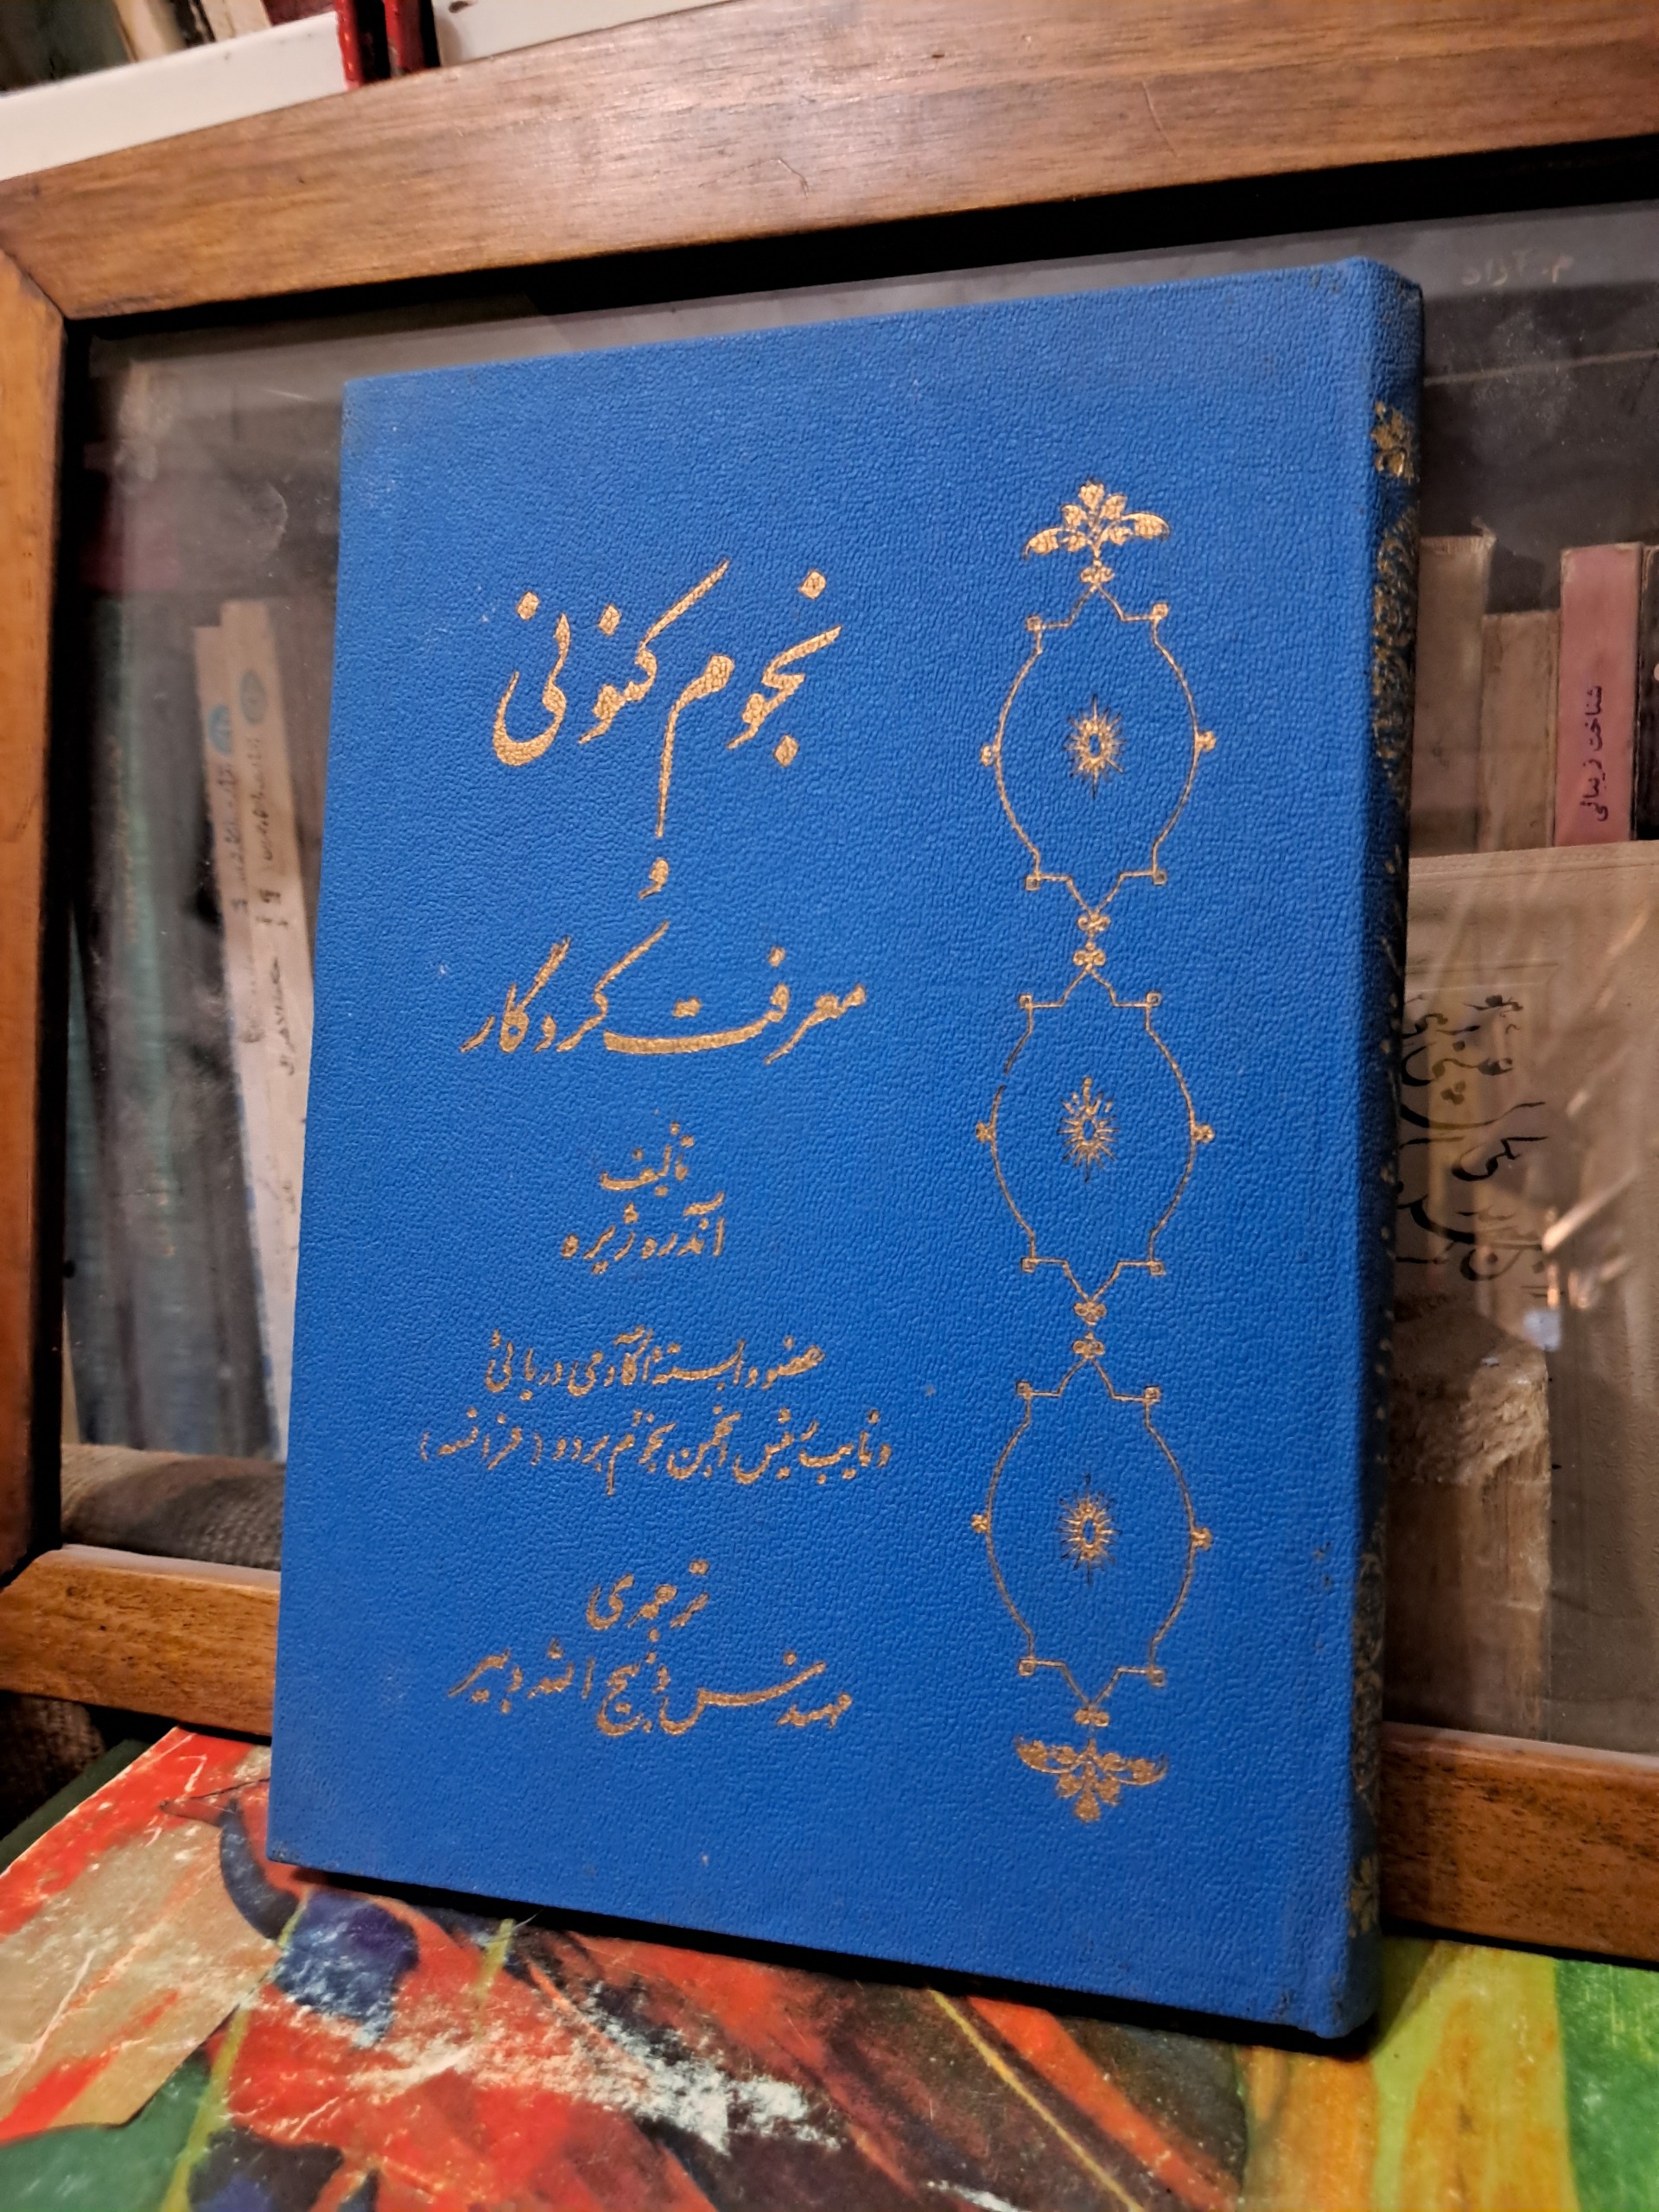 نجوم کنونی
و
معرفت کردگار
تألیف
آندره ژیره
عضو وابستهٔ آکادمی دریائی
و نایب رئیس انجمن نجوم بردو (فرانسه)
ترجمه‌ی
مهندس ذبیح الله دبیر
م. آزاد
شناخت زیبائی